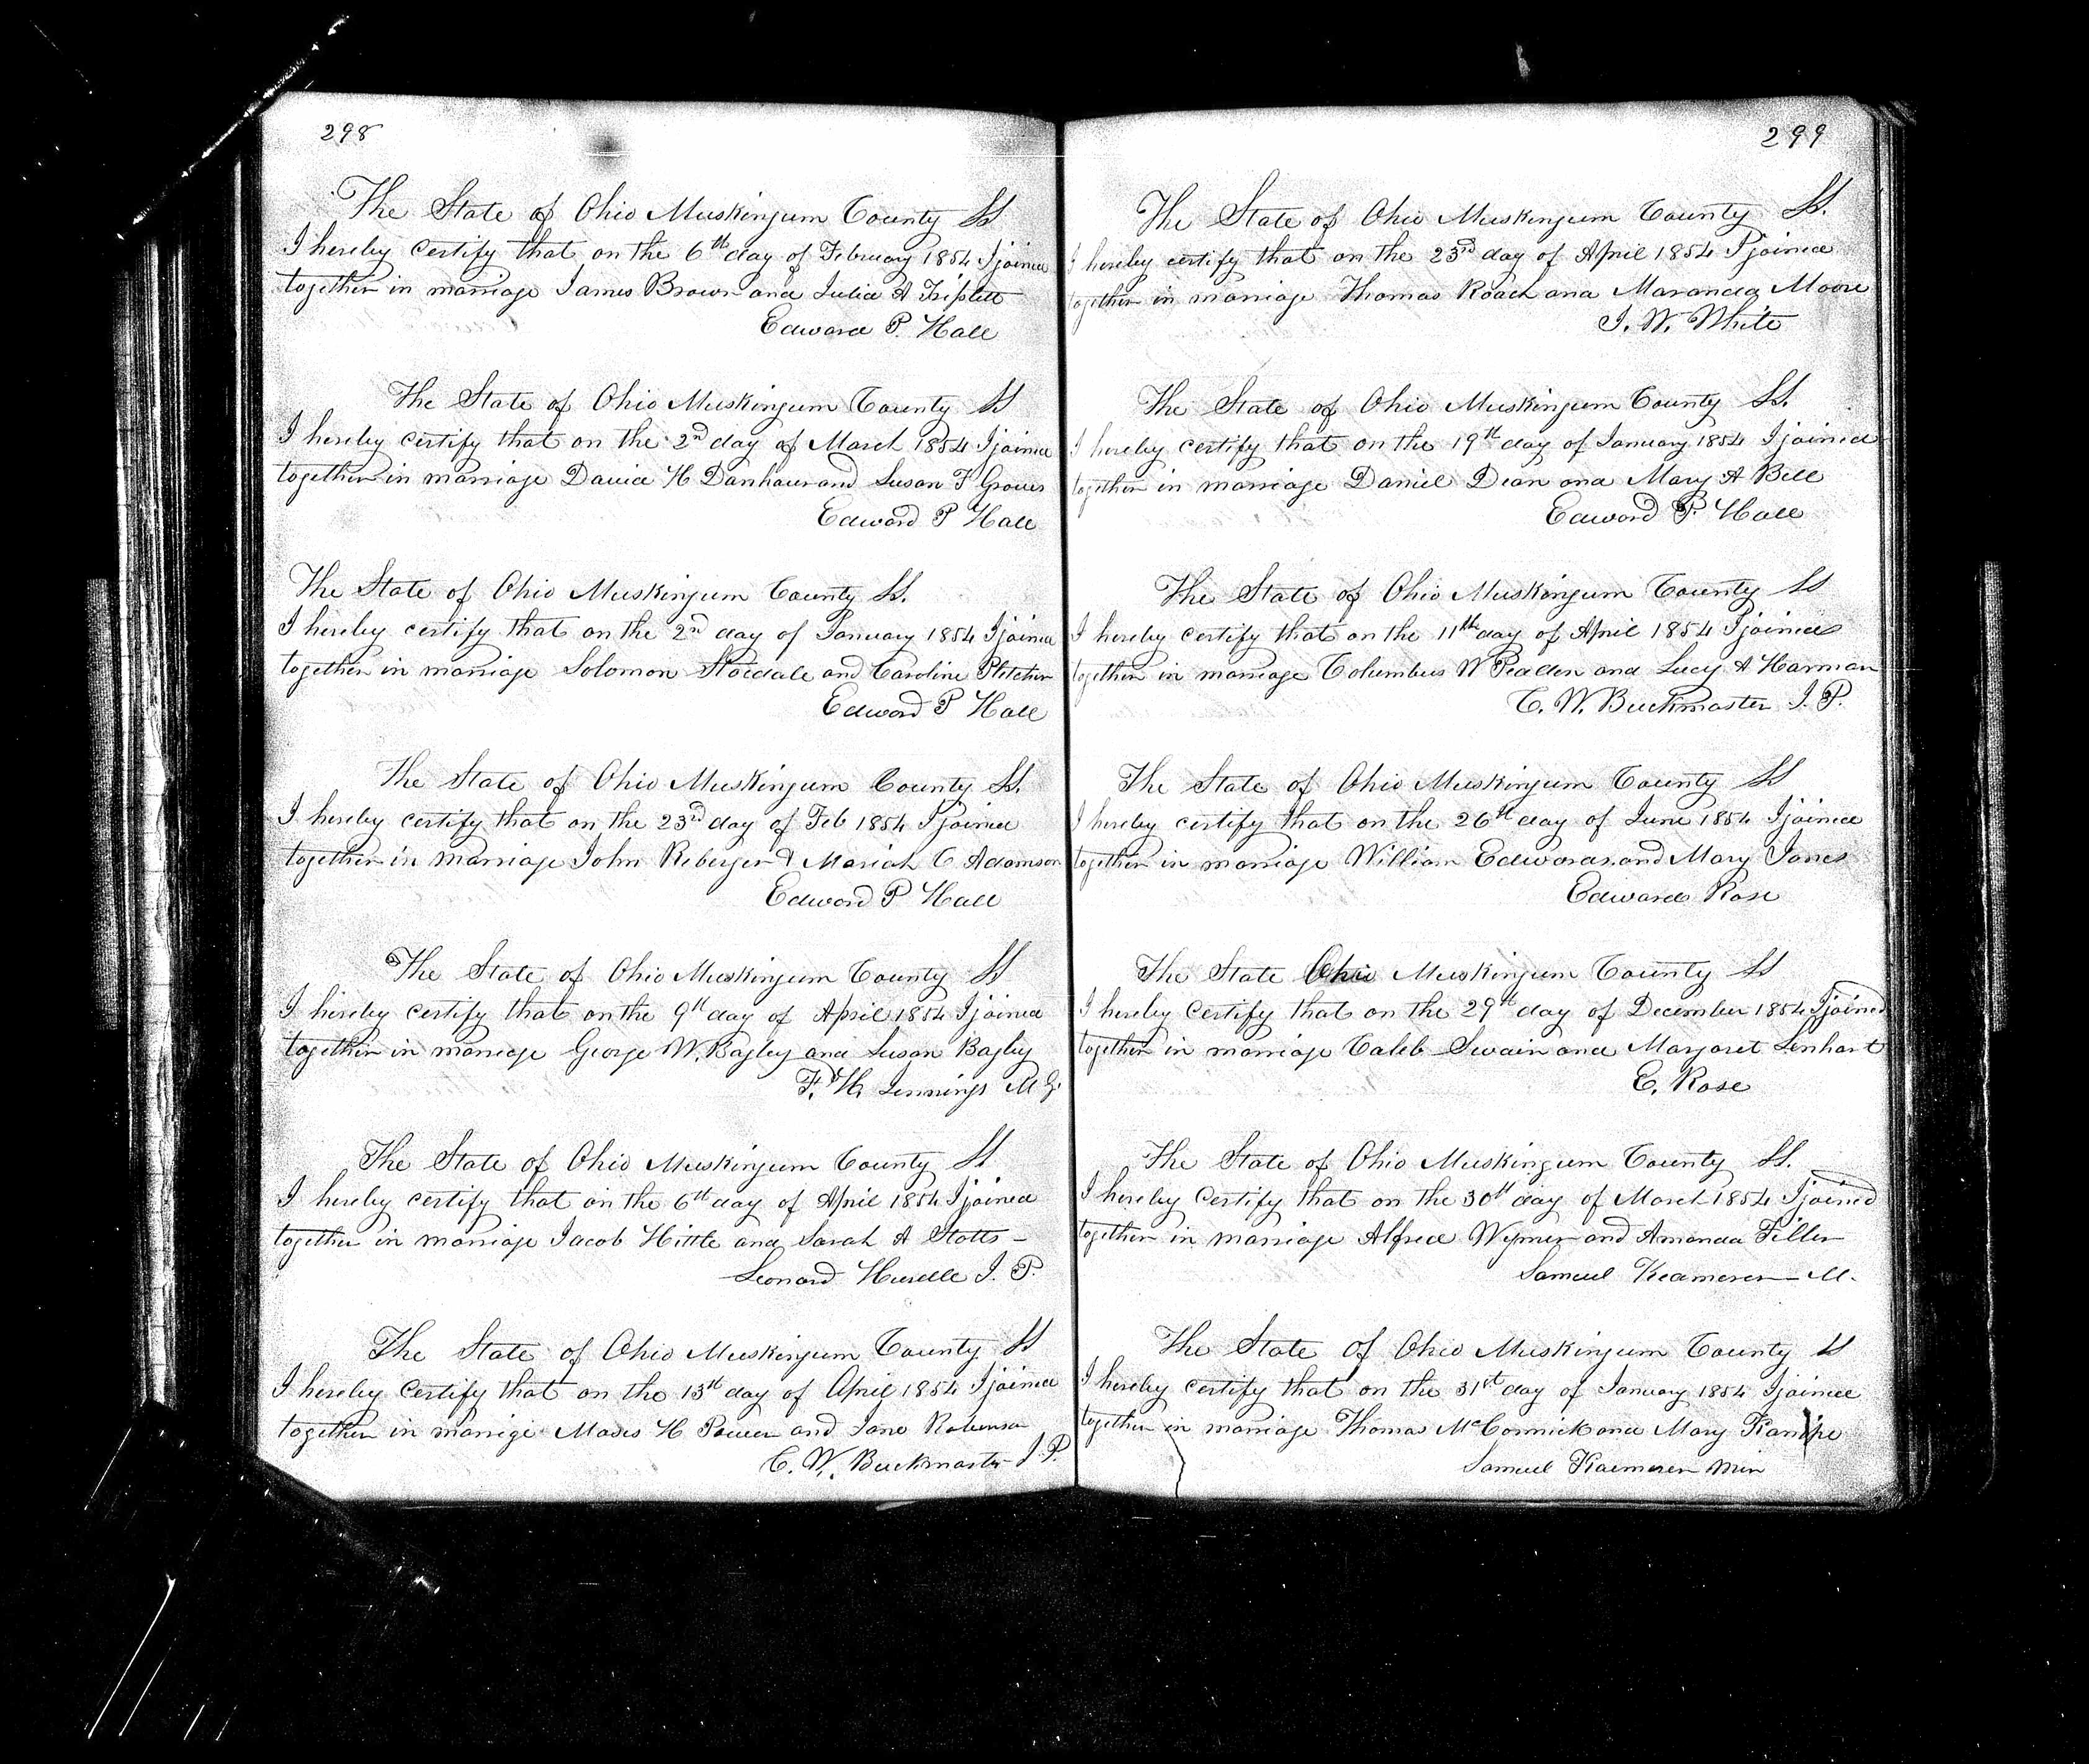 298
The State of Ohio Muskingum County SS
I hereby certify that on the 6th day of February 1854 I joined
together in marriage James Brown and Julia A Triplett
Edward P. Hall
The State of Ohio Muskingum County SS
I hereby certify that on the 2nd day of March 1854 I joined
together in marriage David H Danhauer and Susan F Groves
Edward P Hall
The State of Ohio Muskingum County SS.
I hereby certify that on the 2nd day of January 1854 I joined
together in marriage Solomon Stocdale and Caroline Pletcher
Edward P Hall
The State of Ohio Muskingum County SS.
I hereby certify that on the 23rd day of Feb 1854 I joined
together in marriage John Reberger & Mariah C Adamson
Edward P Hall
The State of Ohio Muskingum County SS
I hereby certify that on the 9th day of April 1854 I joined
together in marriage George W. Bagley and Susan Bagley
F. H. Jennings M G.
The State of Ohio Muskingum County SS
I hereby certify that on the 6th day of April 1854 I joined
together in marriage Jacob Hittle and Sarah A Stotts -
Leonard J. P.
The State of Ohio Muskingum County SS
I hereby certify that on the 13th day of April 1854 I joined
together in marrige Moses H Power and Jane Robinson
C. W. Buckmaster J. P.
299
The State of Ohio Muskingum County SS.
I hereby certify that on the 23rd day of April 1854 I joined
together in marriage Thomas Roach and Maranda Moore
J. W. White
The State of Ohio Muskingum County SS.
I hereby certify that on the 19th day of January 1854 I joined
together in marriage Daniel Dean and Mary A Bell
Edward P. Hall
The State of Ohio Muskingum County SS
I hereby certify that on the 11th day of April 1854 I joined
together in marriage Columbus W and Lucy A Harman
C. W. Buckmaster J. P.
The State of Ohio Muskingum County SS
I hereby certify that on the 26th day of June 1854 I joined
together in marriage William Edwards and Mary Jones
Edward Rose
The State Ohio Muskingum County SS
I hereby certify that on the 29th day of December 1854 I joined
together in marriage Caleb Swain and Margaret Lenhart
E. Rose
The State of Ohio Muskingum County SS.
I hereby certify that on the 30th day of March 1854 I joined
together in marriage Alfred Wymer and Amanda Filler
Samuel Keamerer M.
The State of Ohio Muskingum County SS
I hereby certify that on the 31st day of January 1854 I joined
together in marriage Thomas McCormick and Mary
Samuel Kaemerer Min